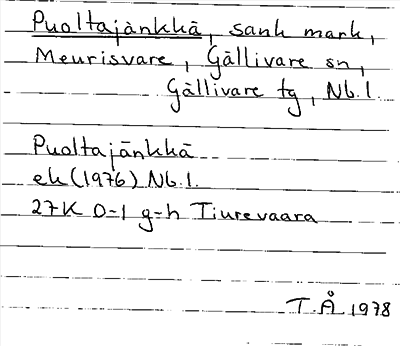 Puoltajänkkä, sank mark,
Meurisvare, Gällivare sn,
Gällivare tg, Nb.l.
Puoltajänkkä
ek (1976) Nb.l.
27K 0-1 g-h Tiurevaara
T.Å 1978